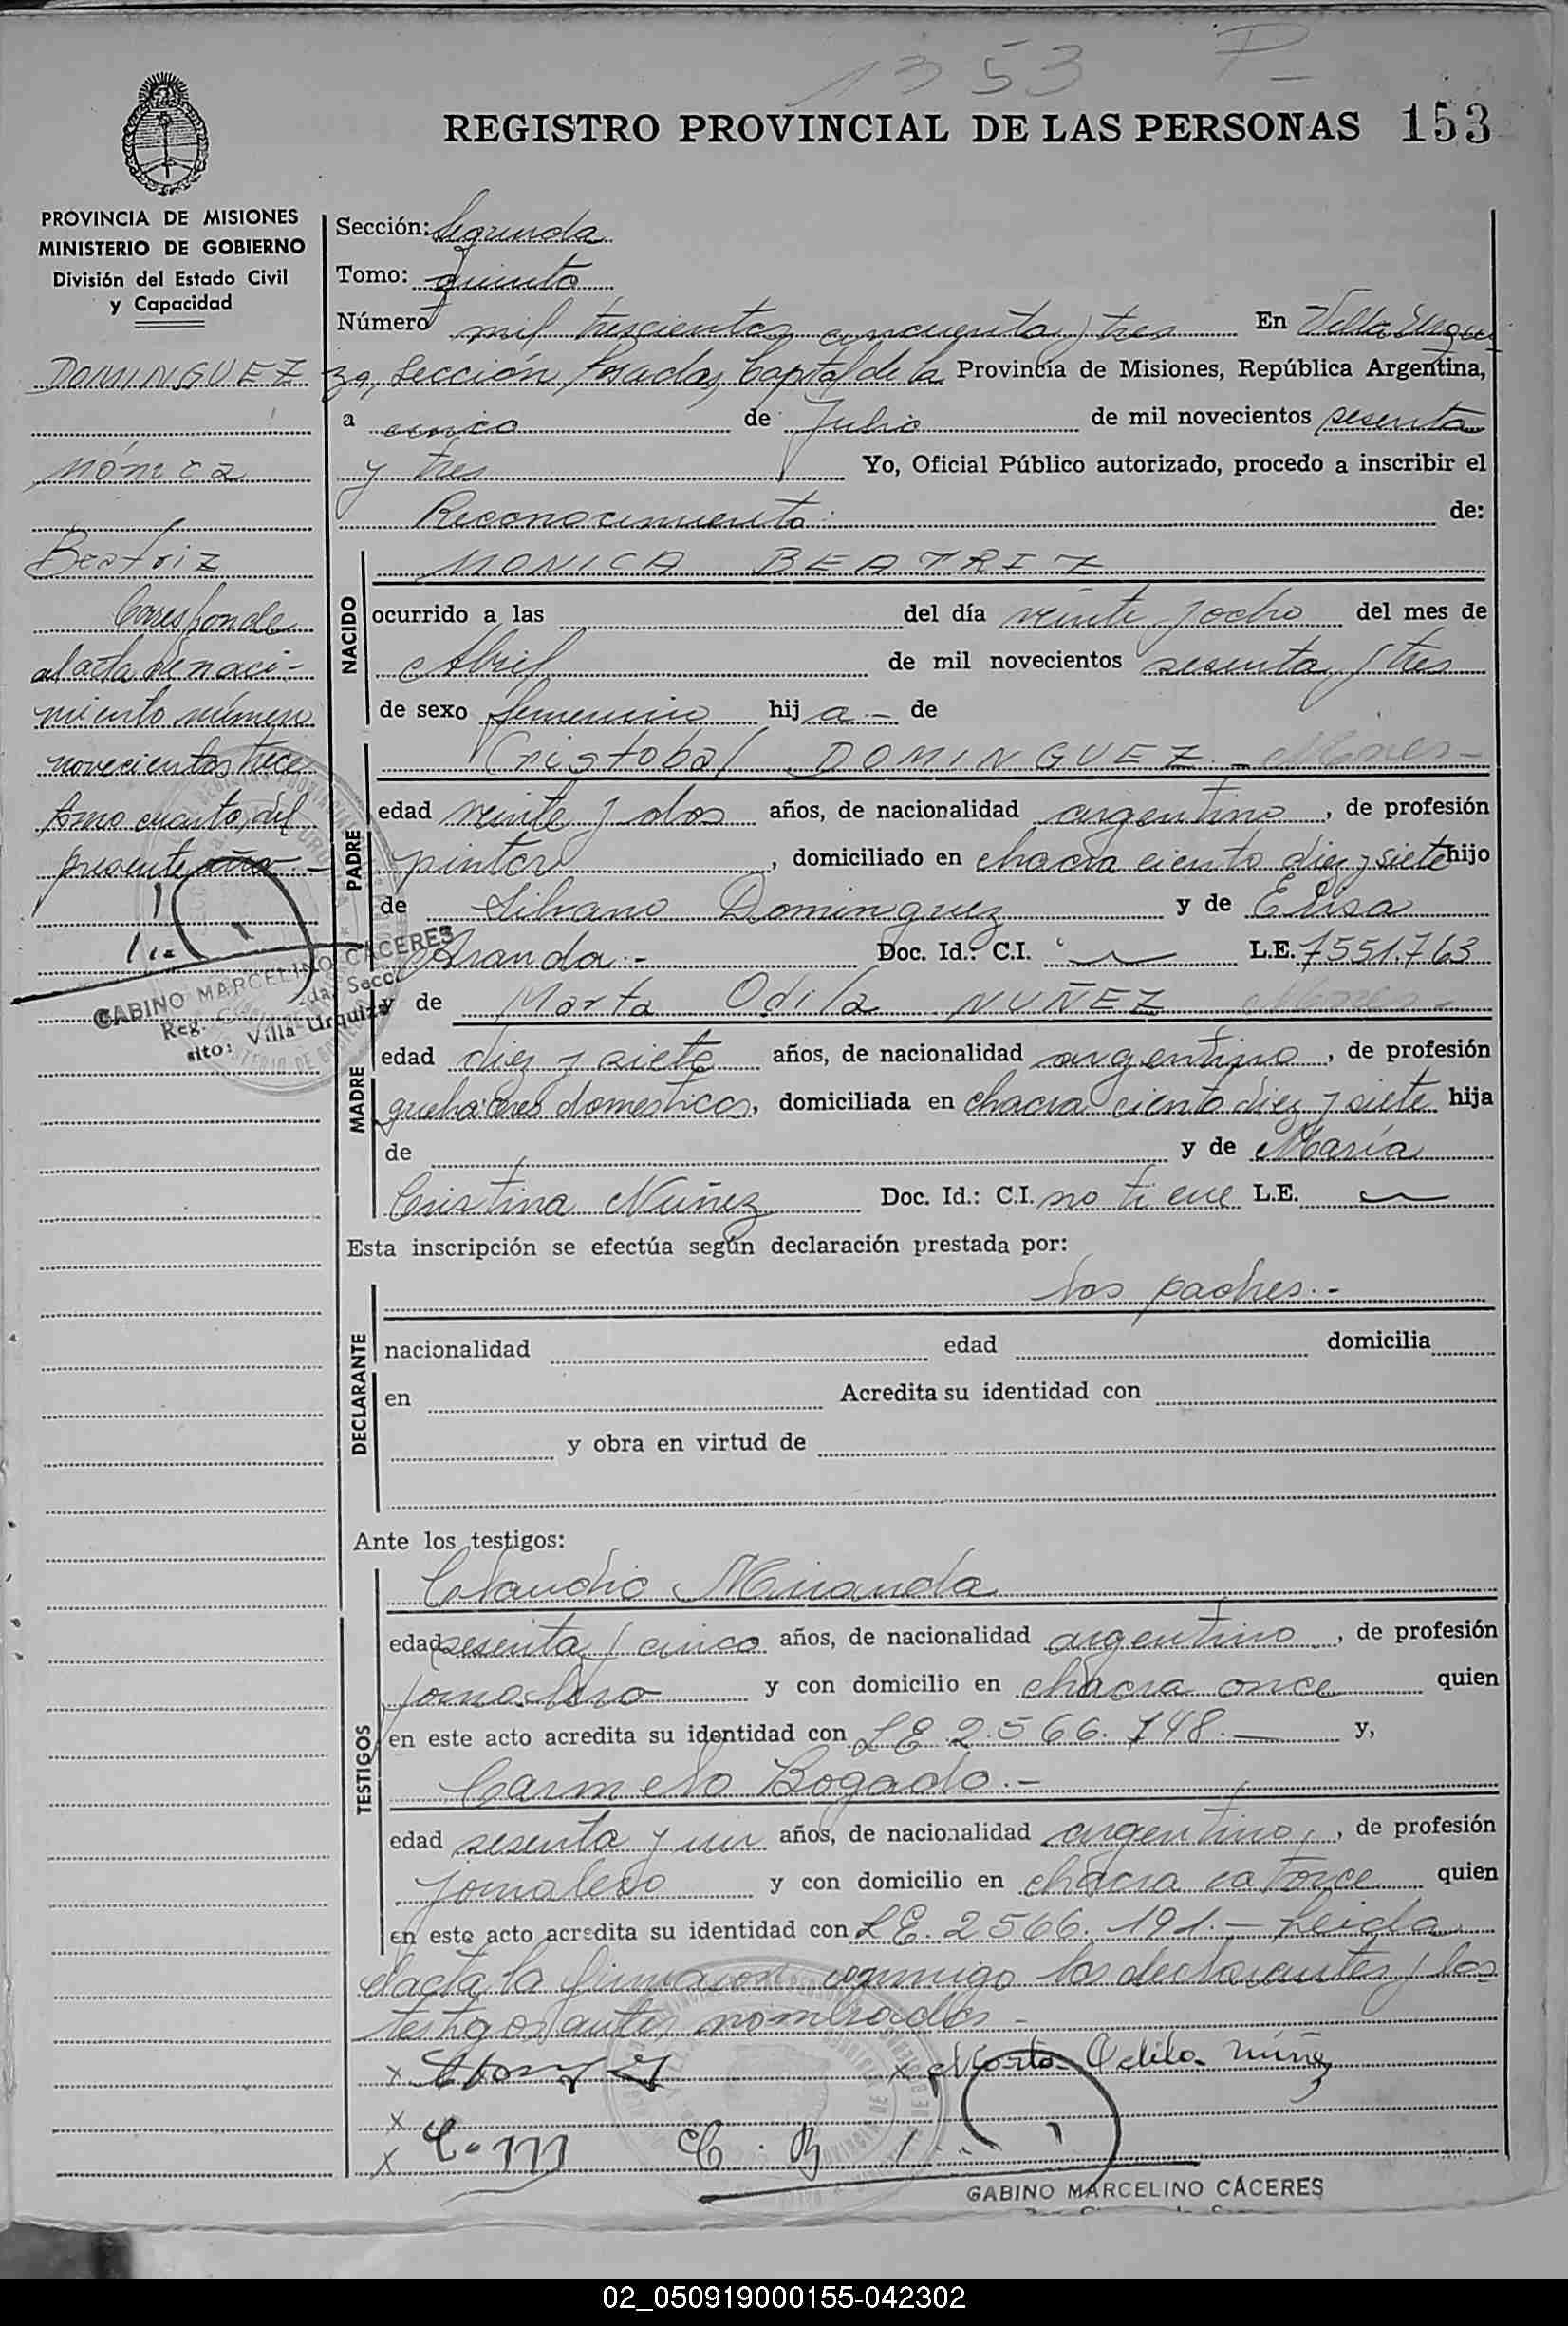 1353 P_
REGISTRO PROVINCIAL DE LAS PERSONAS 153
PROVINCIA DE MISIONES
MINISTERIO DE GOBIERNO
División del Estado Civil
y Capacidad
DOMINGUEZ
Mónica
Beatriz
Corresponde
al acta de naci-
miento número
novecientos trece
tomo cuarto, del
presente año.-
GABINO MARCELINO CACERES
Reg.
sito: Villa Urquiza
Sección: Segunda
Tomo: quinto
Número mil trescientos cincuenta y tres En Villa Urqui
za, Sección Posadas, Capital de la Provincia de Misiones, República Argentina,
a cinco de Julio de mil novecientos sesenta
y tres Yo, Oficial Público autorizado, procedo a inscribir el
Reconocimiento de:
NACIDO
MONICA BEATRIZ
ocurrido a las del día veinte y ocho del mes de
Abril de mil novecientos sesenta y tres
de sexo femenino hij a - de
PADRE
Cristobal DOMINGUEZ.-
edad veinte y dos años, de nacionalidad argentino, de profesión
pintor, domiciliado en chacra ciento diez y siete hijo
de Silvano Dominguez y de Elisa
Aranda.- Doc. Id.: C.I. L.E. 7551.763
y de Marta Odila NUÑEZ
MADRE
edad diez y siete años, de nacionalidad argentina, de profesión
quehaceres domesticos, domiciliada en chacra ciento diez y siete hija
de y de María
Cristina Núñez Doc. Id.: C.I. no tiene L.E.
Esta inscripción se efectúa según declaración prestada por:
DECLARANTE
los padres.-
nacionalidad edad domicilia
en Acredita su identidad con
y obra en virtud de
Ante los testigos:
TESTIGOS
Claudio Miranda
edad sesenta y cinco años, de nacionalidad argentino, de profesión
jornalero y con domicilio en chacra once quien
en este acto acredita su identidad con LE 2.566.748.- y,
Carmelo Bogado.-
edad sesenta y un años, de nacionalidad argentino, de profesión
jornalero y con domicilio en chacra catorce quien
en este acto acredita su identidad con LE. 2566.191.- Leida
el acta la firmaron conmigo los declarantes y los
testigos antes nombrados -
x x Marta Odila Núñez
x
x C. M C. B
GABINO MARCELINO CÁCERES
02_050919000155-042302